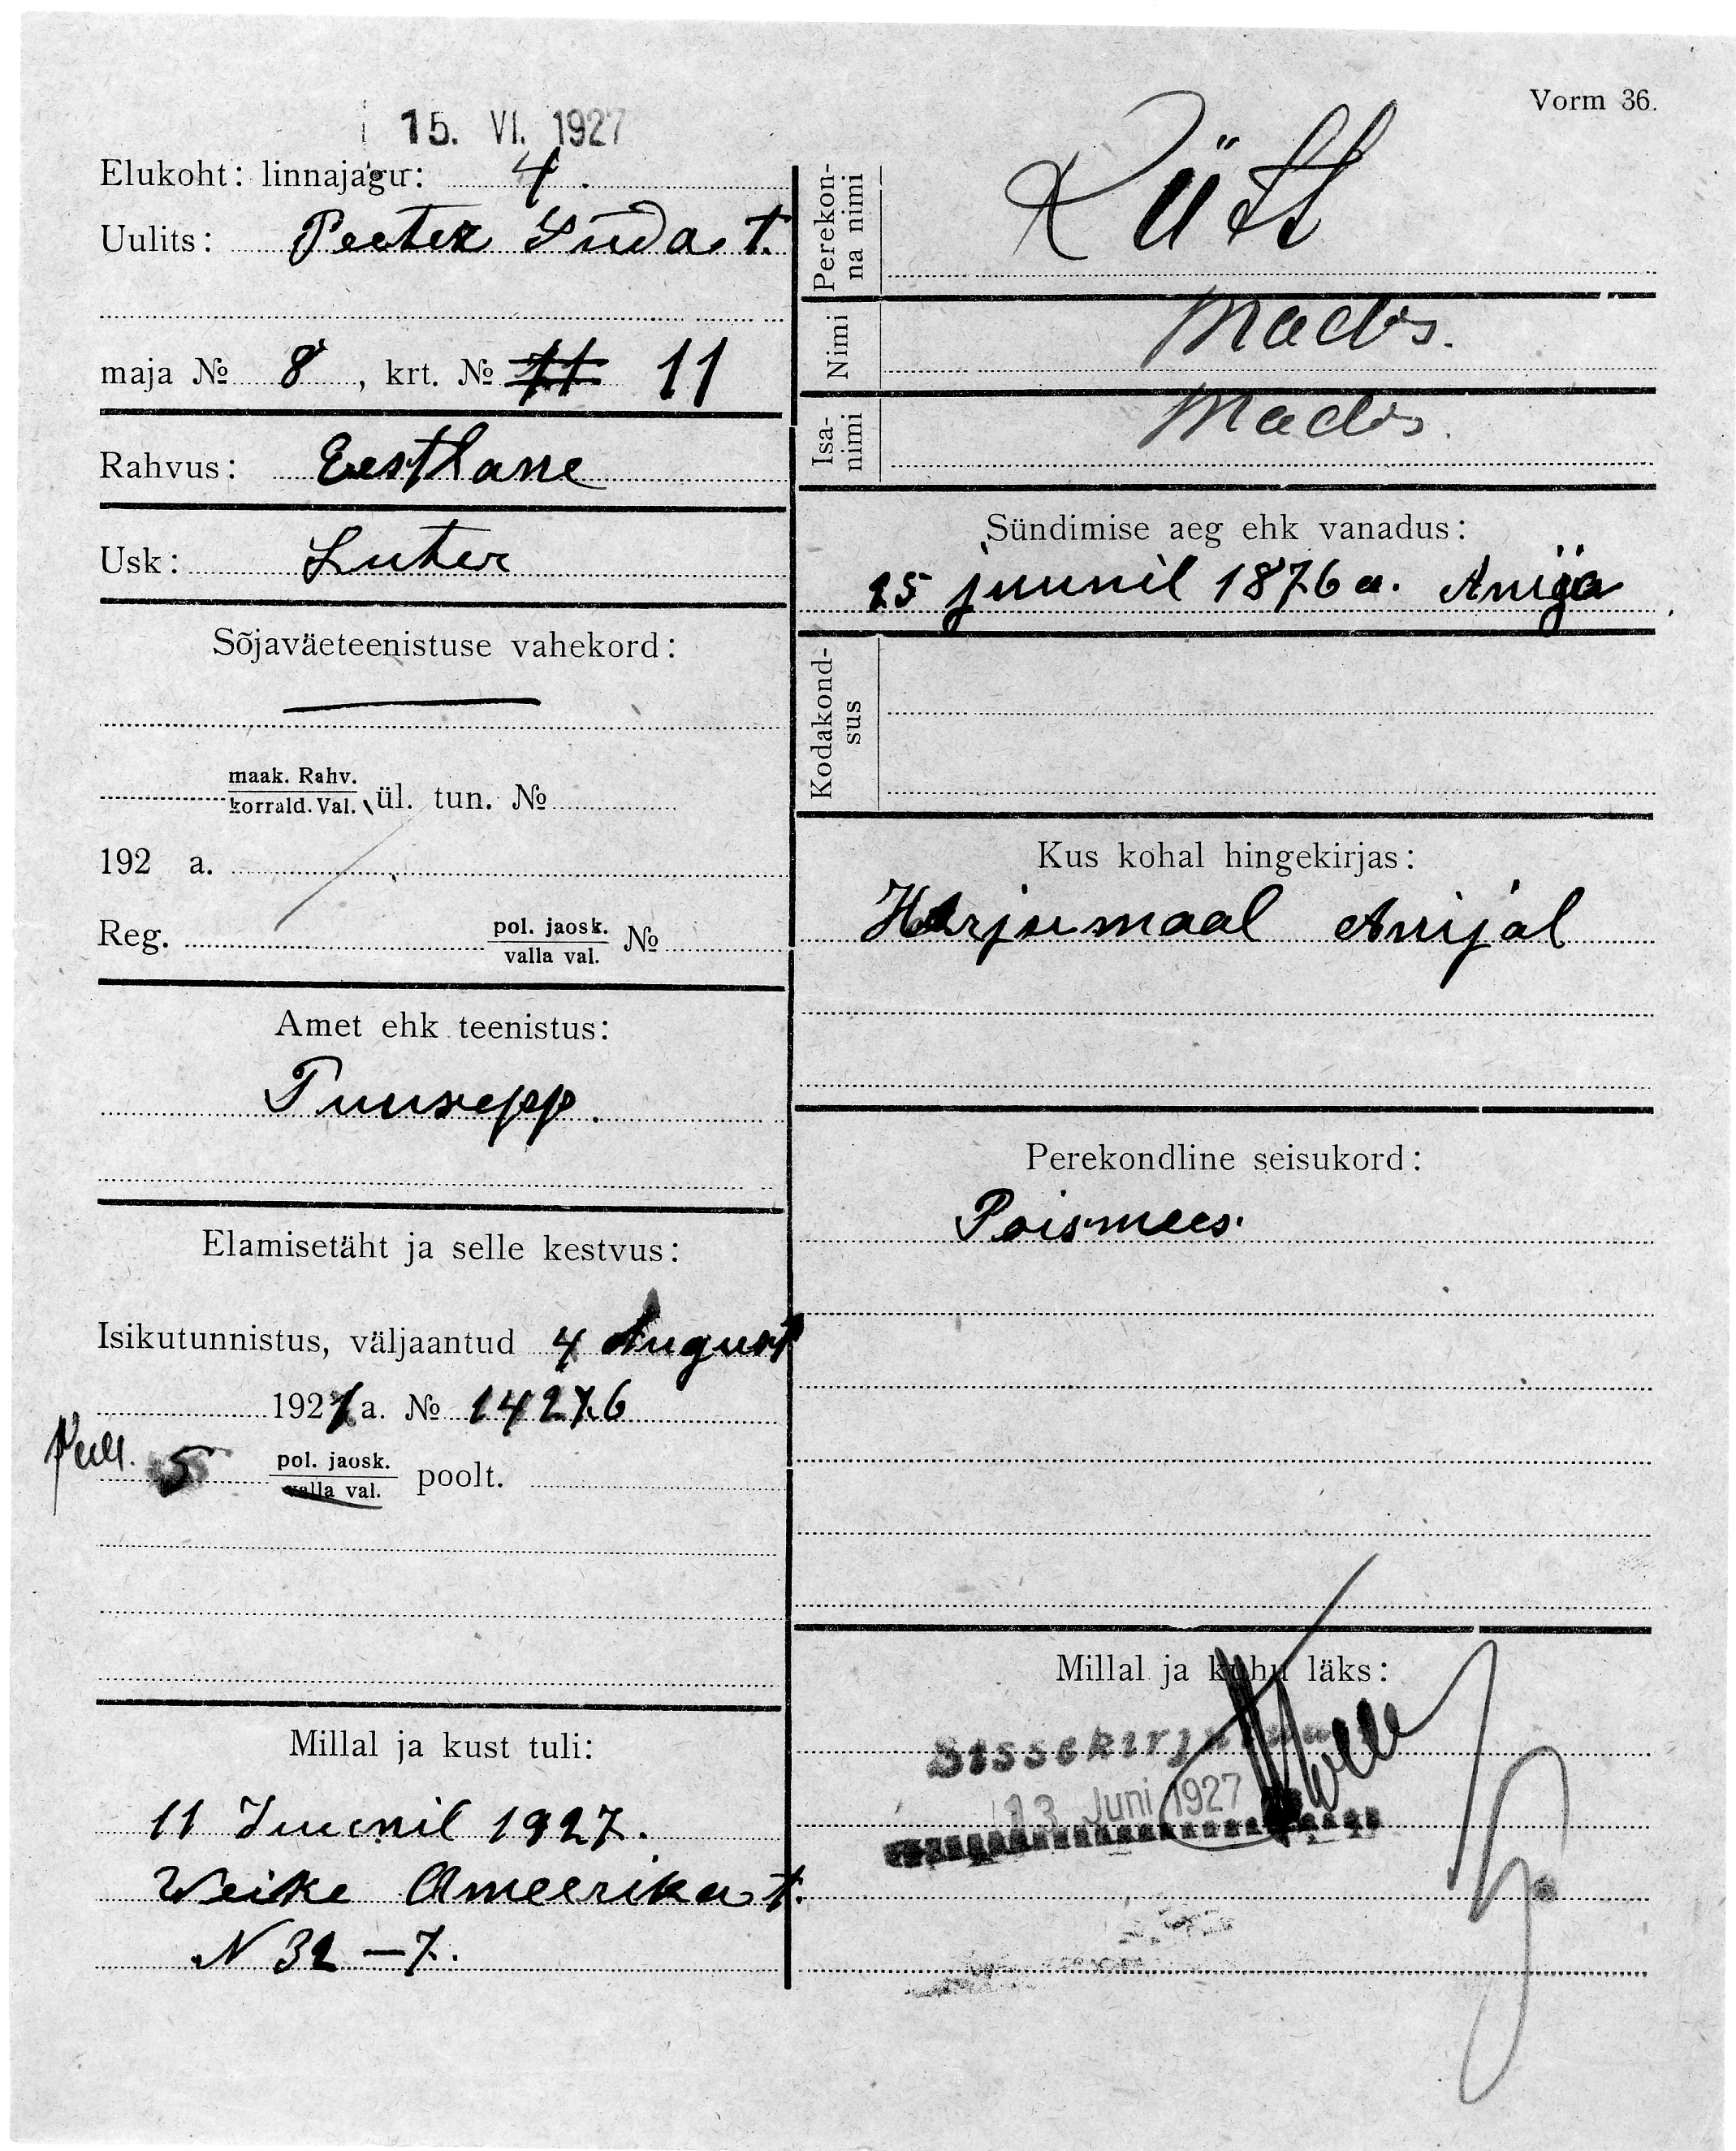 15. VI. 1927
Vorm 36.
Elukoht: linnajagu: 4.
Uulits: Peeter Süda t.
maja № 8, krt. № 11 11
Rahvus: Eestlane
Usk: Luter
Sõjaväeteenistuse vahekord:
maak. Rahv.
korrald. Val. ül. tun. №
192 a.
Reg. pol. jaosk. №
valla val.
Amet ehk teenistus:
Puusepp.
Elamisetäht ja selle kestvus:
Isikutunnistus, väljaantud 4 August
192 a. №
5 pol. jaosk. poolt.
valla val.
Millal ja kust tuli:
11 Juunil 1927.
Weike Ameerika t.
N 32 – 7.
Perekon-
na nimi
Rütt
Nimi Madis.
Isa-
nimi
Madis.
Sündimise aeg ehk vanadus:
25 juunil 1876 a. Anija
Kodakond-
sus
Kus kohal hingekirjas:
Harjumaal Anijal
Perekondline seisukord:
Poismees.
Millal ja kuhu läks:
13 Juni 1927